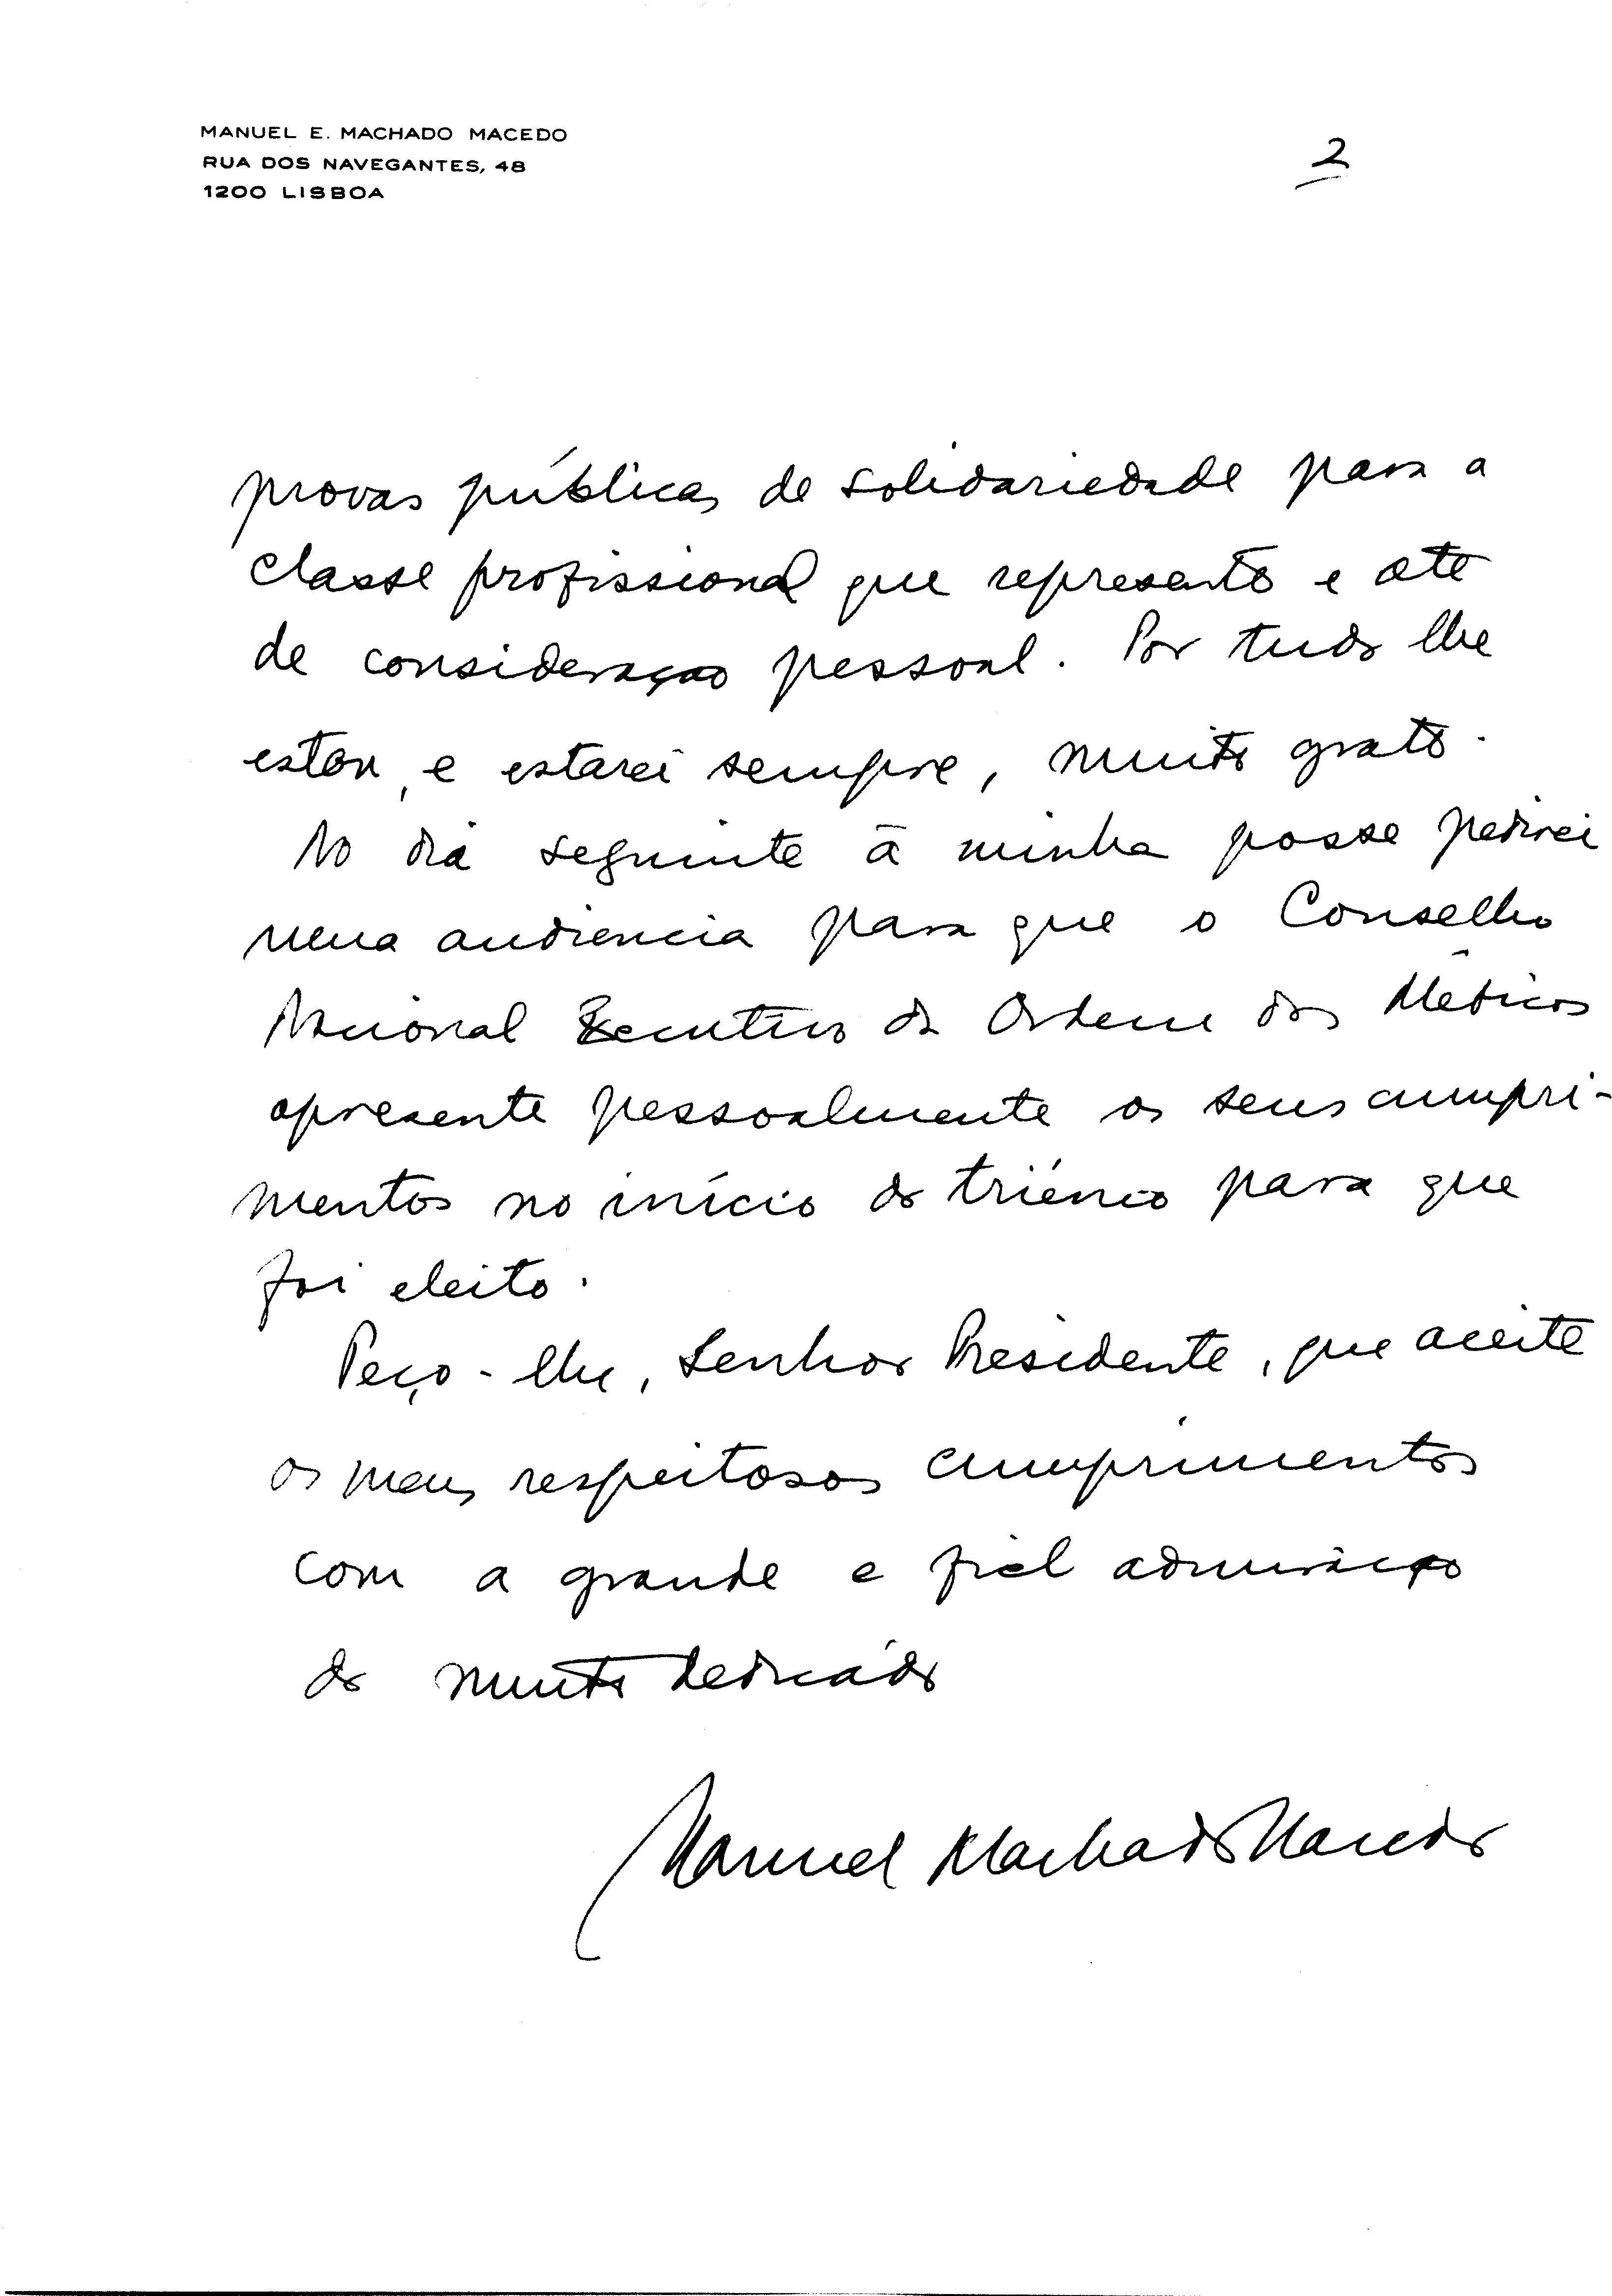 MANUEL E. MACHADO MACEDO
RUA DOS NAVEGANTES, 48
1200 LISBOA
2
provas públicas de solidariedade para a
classe profissional que represento e até
de consideração pessoal. Por tudo lhe
estou, e estarei sempre, muito grato.
No dia seguinte à minha posse pedirei
uma audiencia para que o Conselho
Nacional Executivo da Ordem dos Médicos
apresente pessoalmente os seus cumpri-
mentos no início do triénio para que
foi eleito.
Peço-lhe, Senhor Presidente, que aceite
os meus respeitosos cumprimentos
com a grande e fiel admiração
do muito dedicado
Manuel Machado Macedo